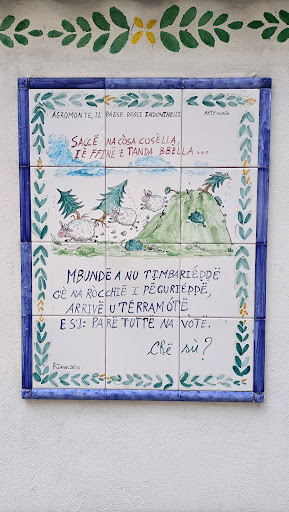 AGROMONTE, IL PAESE DEGLI INDOVINELLI
SACCË NA CÒSA CUSÈLLA,
IÈ FFINË E TANDA BBELLA...
MBUNDË A NU TIMBARIÉDDË
C'È NA RÒCCHIË I PËGURIÉDDË,
ARRIVË U TËRRAMÓTË
E SI PARË TUTTË NA VÒTË.
Chë sù?